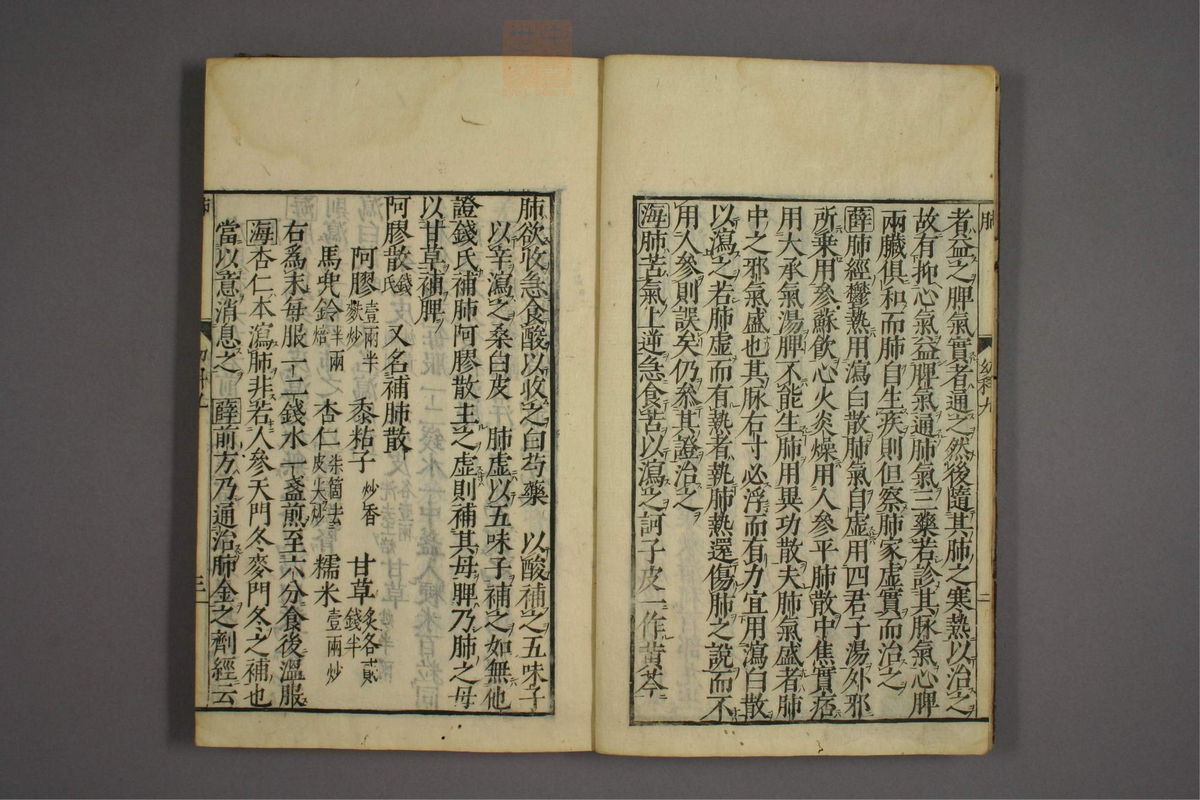 者益之脾氣實者通之然後隨其肺之寒熱以治之
故有抑心氣益脾氣通肺氣三藥若診其脉氣心脾
兩臟俱和而肺自生疾則但察肺家虛實而治之
薛肺經鬱熱用瀉白散肺氣自虛用四君子湯外邪
所乗用參蘇飲心火炎燥用人參平肺散中焦實痞
用大承氣湯脾不能生肺用異功散夫肺氣盛者肺
中之邪氣盛也其脉右寸必浮而有力宜用瀉白散
以瀉之若肺虛而有熱者執肺熱還傷肺之說而不
用人參則誤矣仍叅其證治之
海肺苦氣上逆急食苦以瀉之訶子皮一作黃芩
肺
幼科九
二
肺欲收急食酸以收之白芍藥　以酸補之五味子
以辛瀉之桑白皮　肺虛以五味子補之如無他
證錢氏補肺阿膠散主之虛則補其母脾乃肺之母
以甘草補脾
阿膠散錢氏　又名補肺散
阿膠壹兩半麩炒　黍粘子炒香　甘草炙各貳錢半
馬兜鈴半兩焙　杏仁柒箇去皮尖炒　糯米壹兩炒
右爲末每服一二錢水一盞煎至六分食後溫服
海杏仁本瀉肺非若人參天門冬麥門冬之補也
當以意消息之　薛前方乃通治肺金之劑經云
三